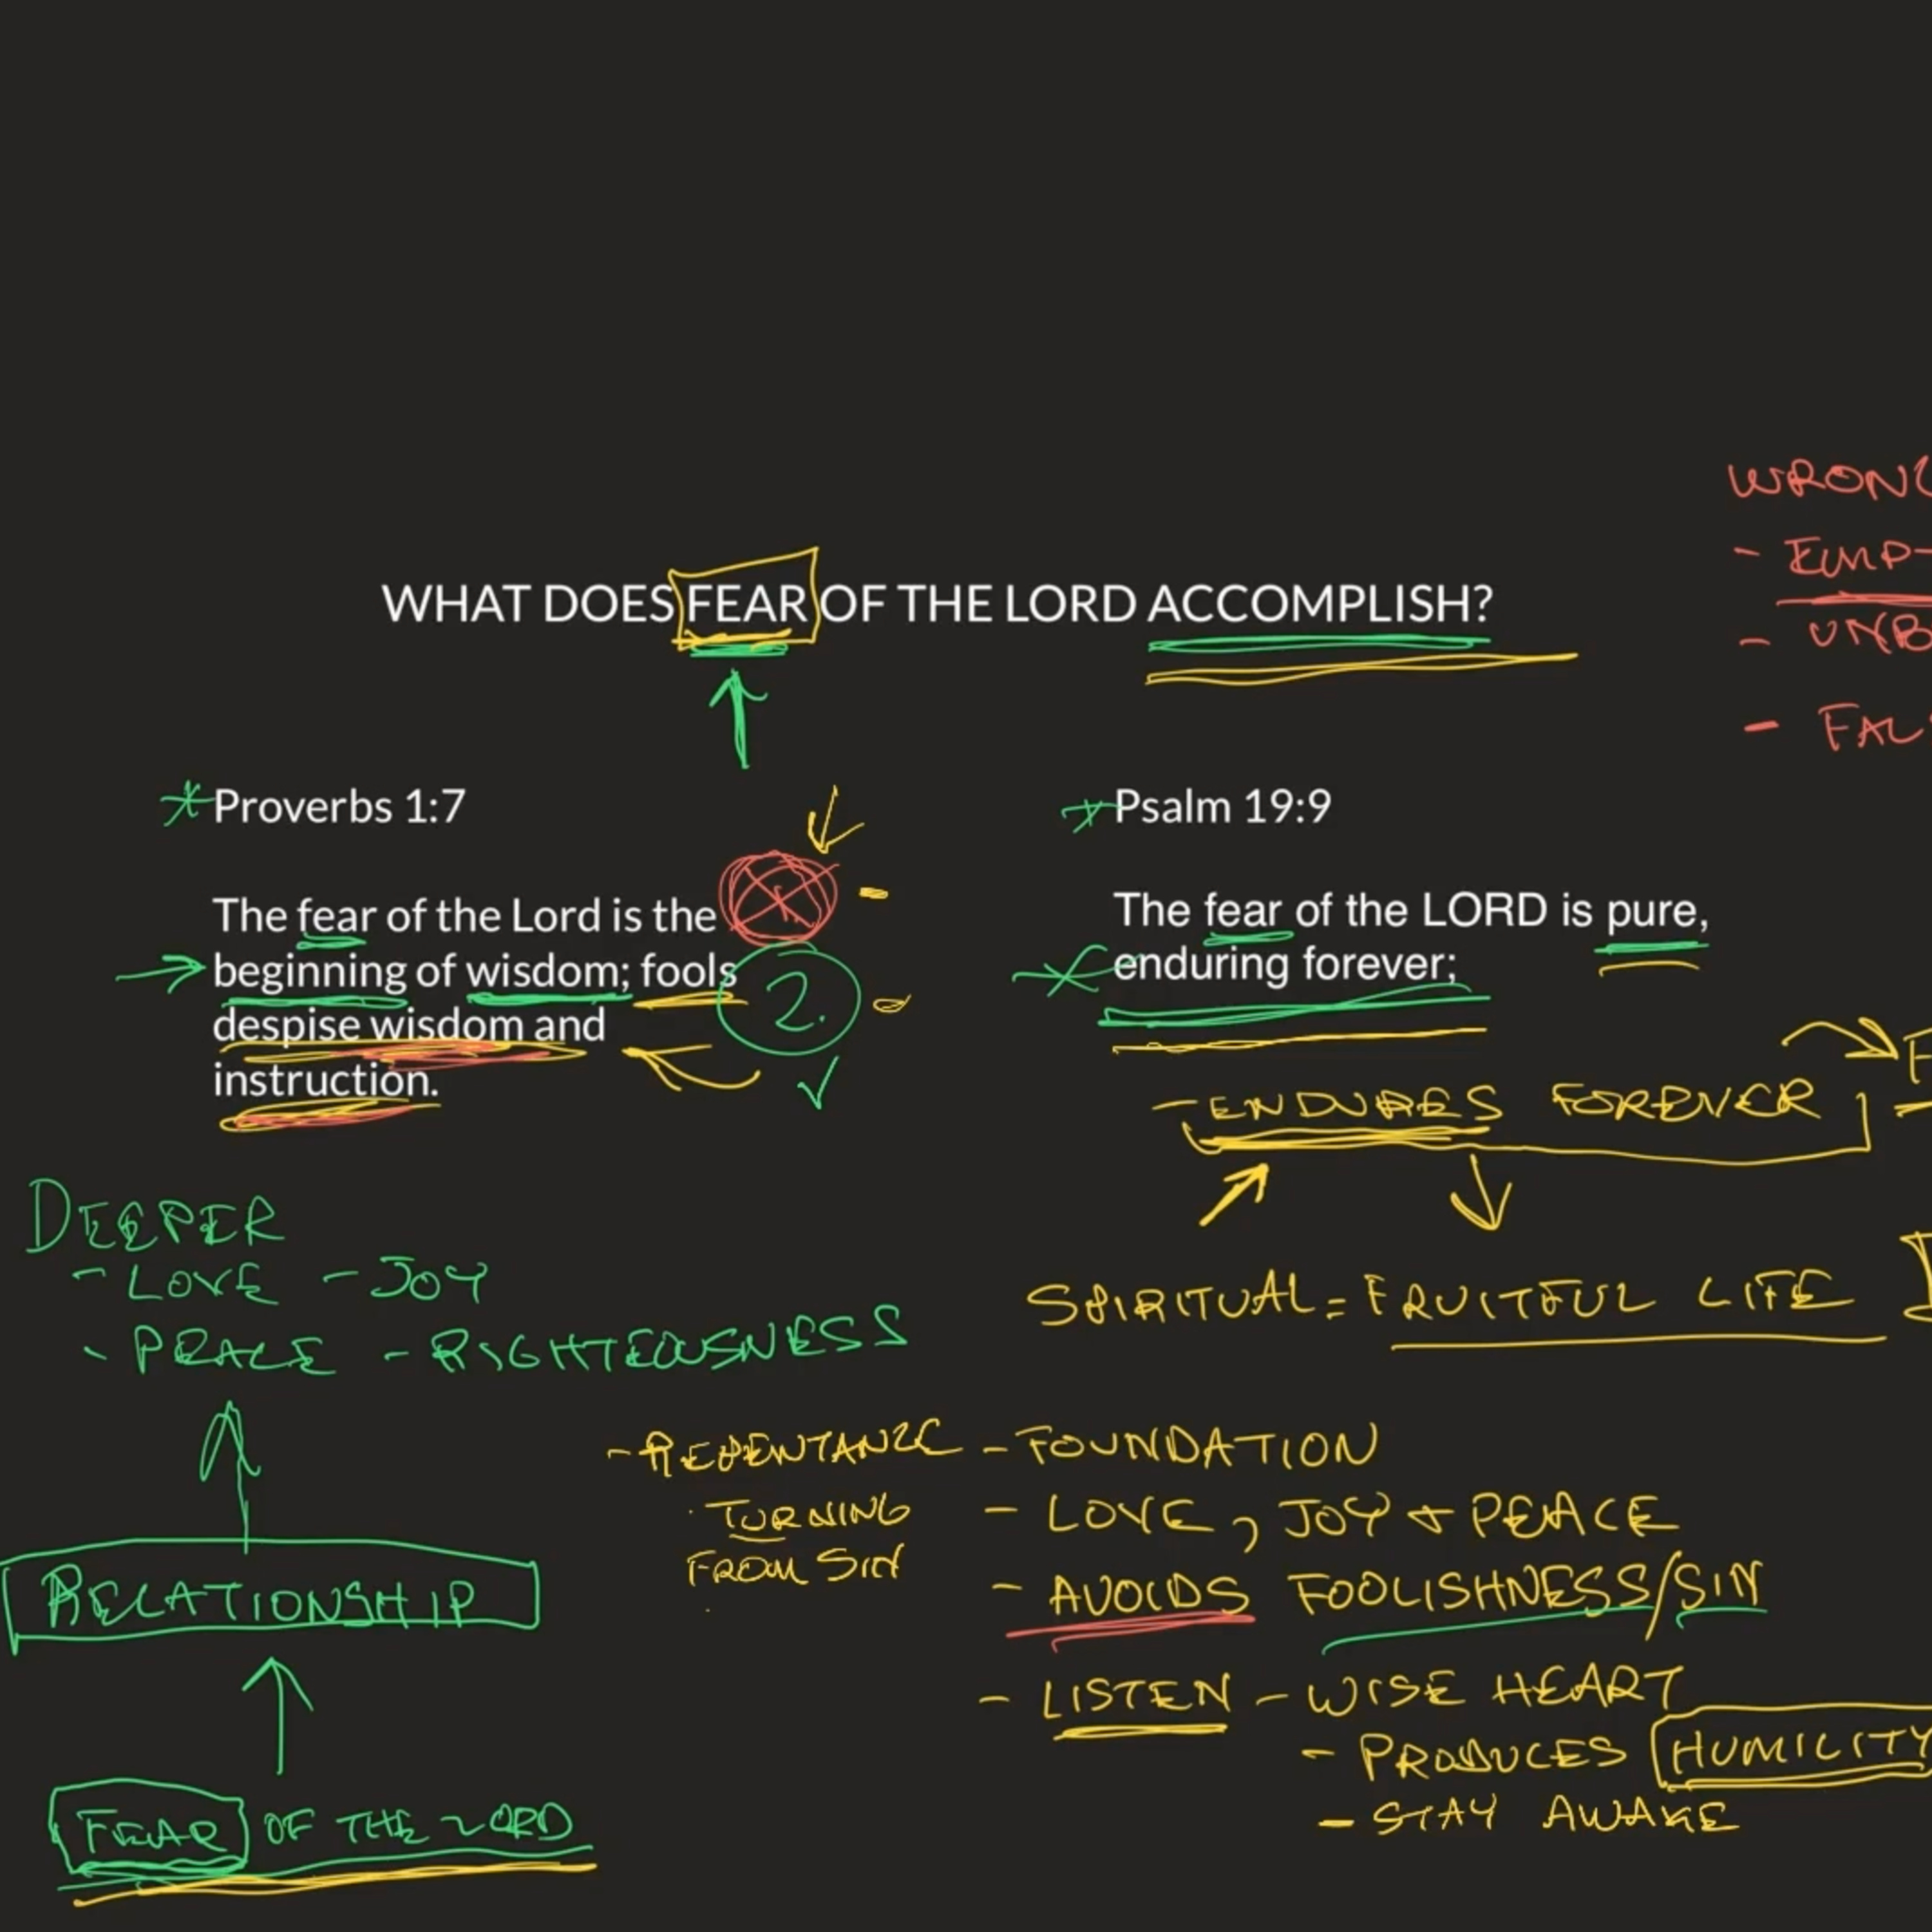 WHAT DOES FEAR OF THE LORD ACCOMPLISH?
Proverbs 1:7
The fear of the Lord is the
beginning of wisdom; fools
despise wisdom and
instruction.
2.
Psalm 19:9
The fear of the LORD is pure,
enduring forever;
- ENDURES FOREVER
SPIRITUAL = FRUITFUL LIFE
DEEPER
- LOVE - JOY
- PEACE - RIGHTEOUSNESS
RELATIONSHIP
FEAR OF THE LORD
- REPENTANCE
TURNING
FROM SIN
- FOUNDATION
- LOVE, JOY + PEACE
- AVOIDS FOOLISHNESS/SIN
- LISTEN - WISE HEART
- PRODUCES HUMILITY
- STAY AWAKE